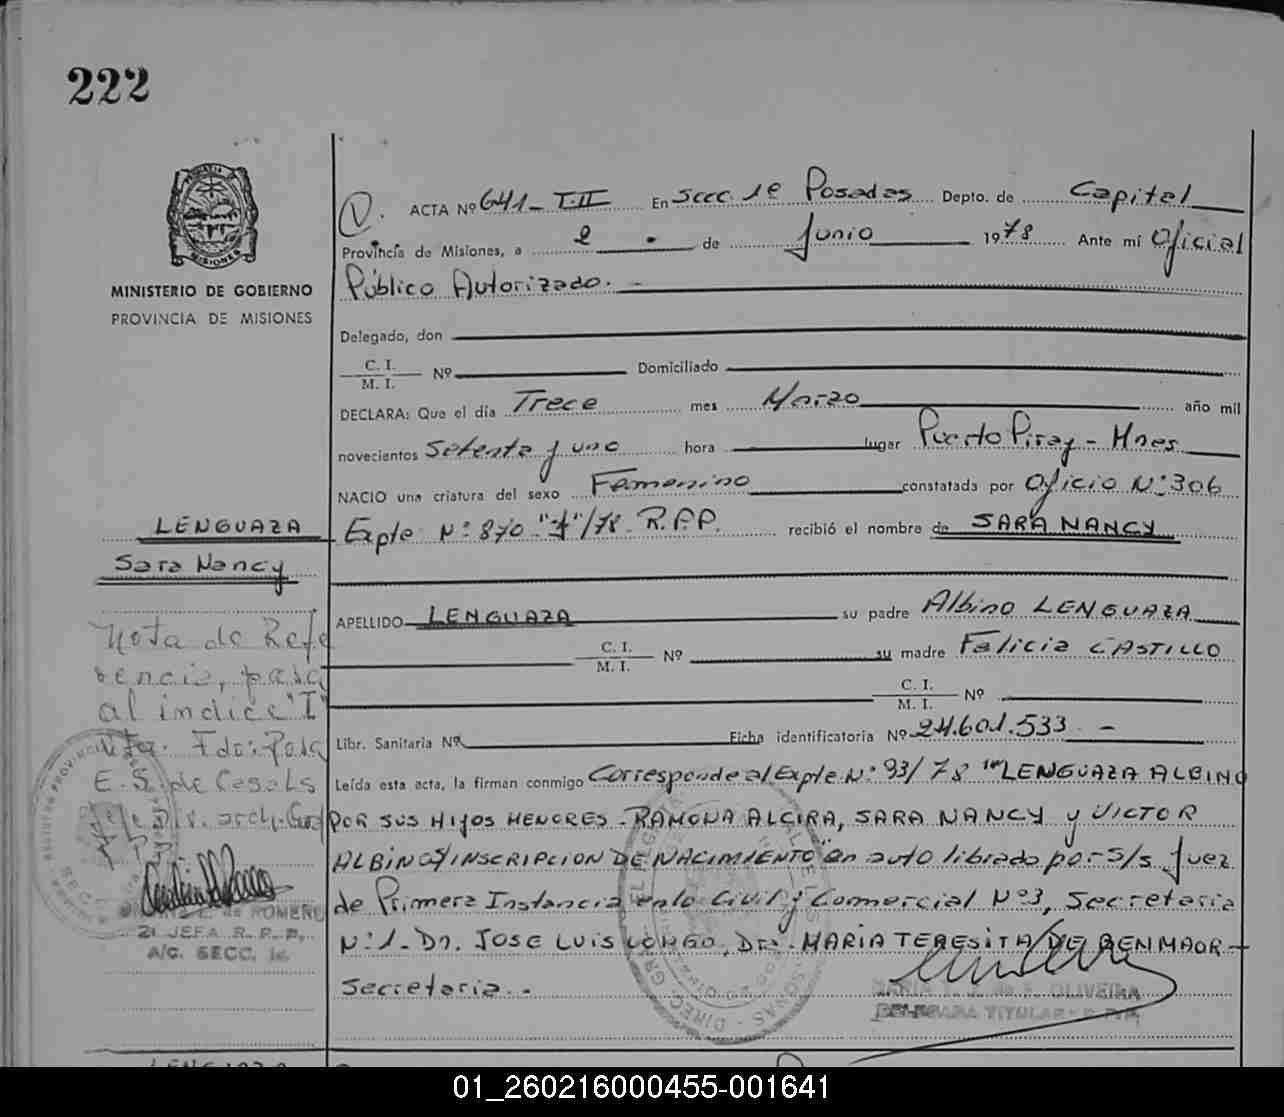 222
MINISTERIO DE GOBIERNO
PROVINCIA DE MISIONES
ACTA Nº 641-T.II En Secc. 1º Posadas Depto. de Capital
Provincia de Misiones, a 2 de Junio 1978 Ante mí Oficial
Público Autorizado.-
Delegado, don
C. I.
M. I. Nº Domiciliado
DECLARA: Que el día Trece mes Marzo año mil
novecientos Setenta y uno hora lugar Puerto Piray - Mnes
NACIO una criatura del sexo Femenino constatada por Oficio Nº 306
Expte Nº 870 "1"/78 R.P.P. recibió el nombre de SARA NANCY
APELLIDO LENGUAZA su padre Albino LENGUAZA
C. I.
M. I. Nº su madre Felicia CASTILLO
C. I.
M. I. Nº
Libr. Sanitaria Nº Ficha identificatoria Nº 24.601.533.-
Leída esta acta, la firman conmigo Corresponde al Expte Nº 93/78 LENGUAZA ALBINO
POR SUS HIJOS MENORES - RAMONA ALCIRA, SARA NANCY y VICTOR
ALBINO S/INSCRIPCION DE NACIMIENTO" en auto librado por S/S Juez
de Primera Instancia en lo Civil y Comercial Nº 3, Secretaria
Nº 1- Dr. JOSE LUIS LONGO, Dra. MARIA TERESITA DE BENMAOR-
Secretaria.-
LENGUAZA
Sara Nancy
Nota de Refe
rencia, pasa
al indice "I"
Fdo: Rosa
E. S. de Cesals
Jefe Div. Arch. Gral
de ROMERO
2ª JEFA R. P. P.
A/C. SECC. 1a.
OLIVEIRA
DELEGADA TITULAR
01_260216000455-001641